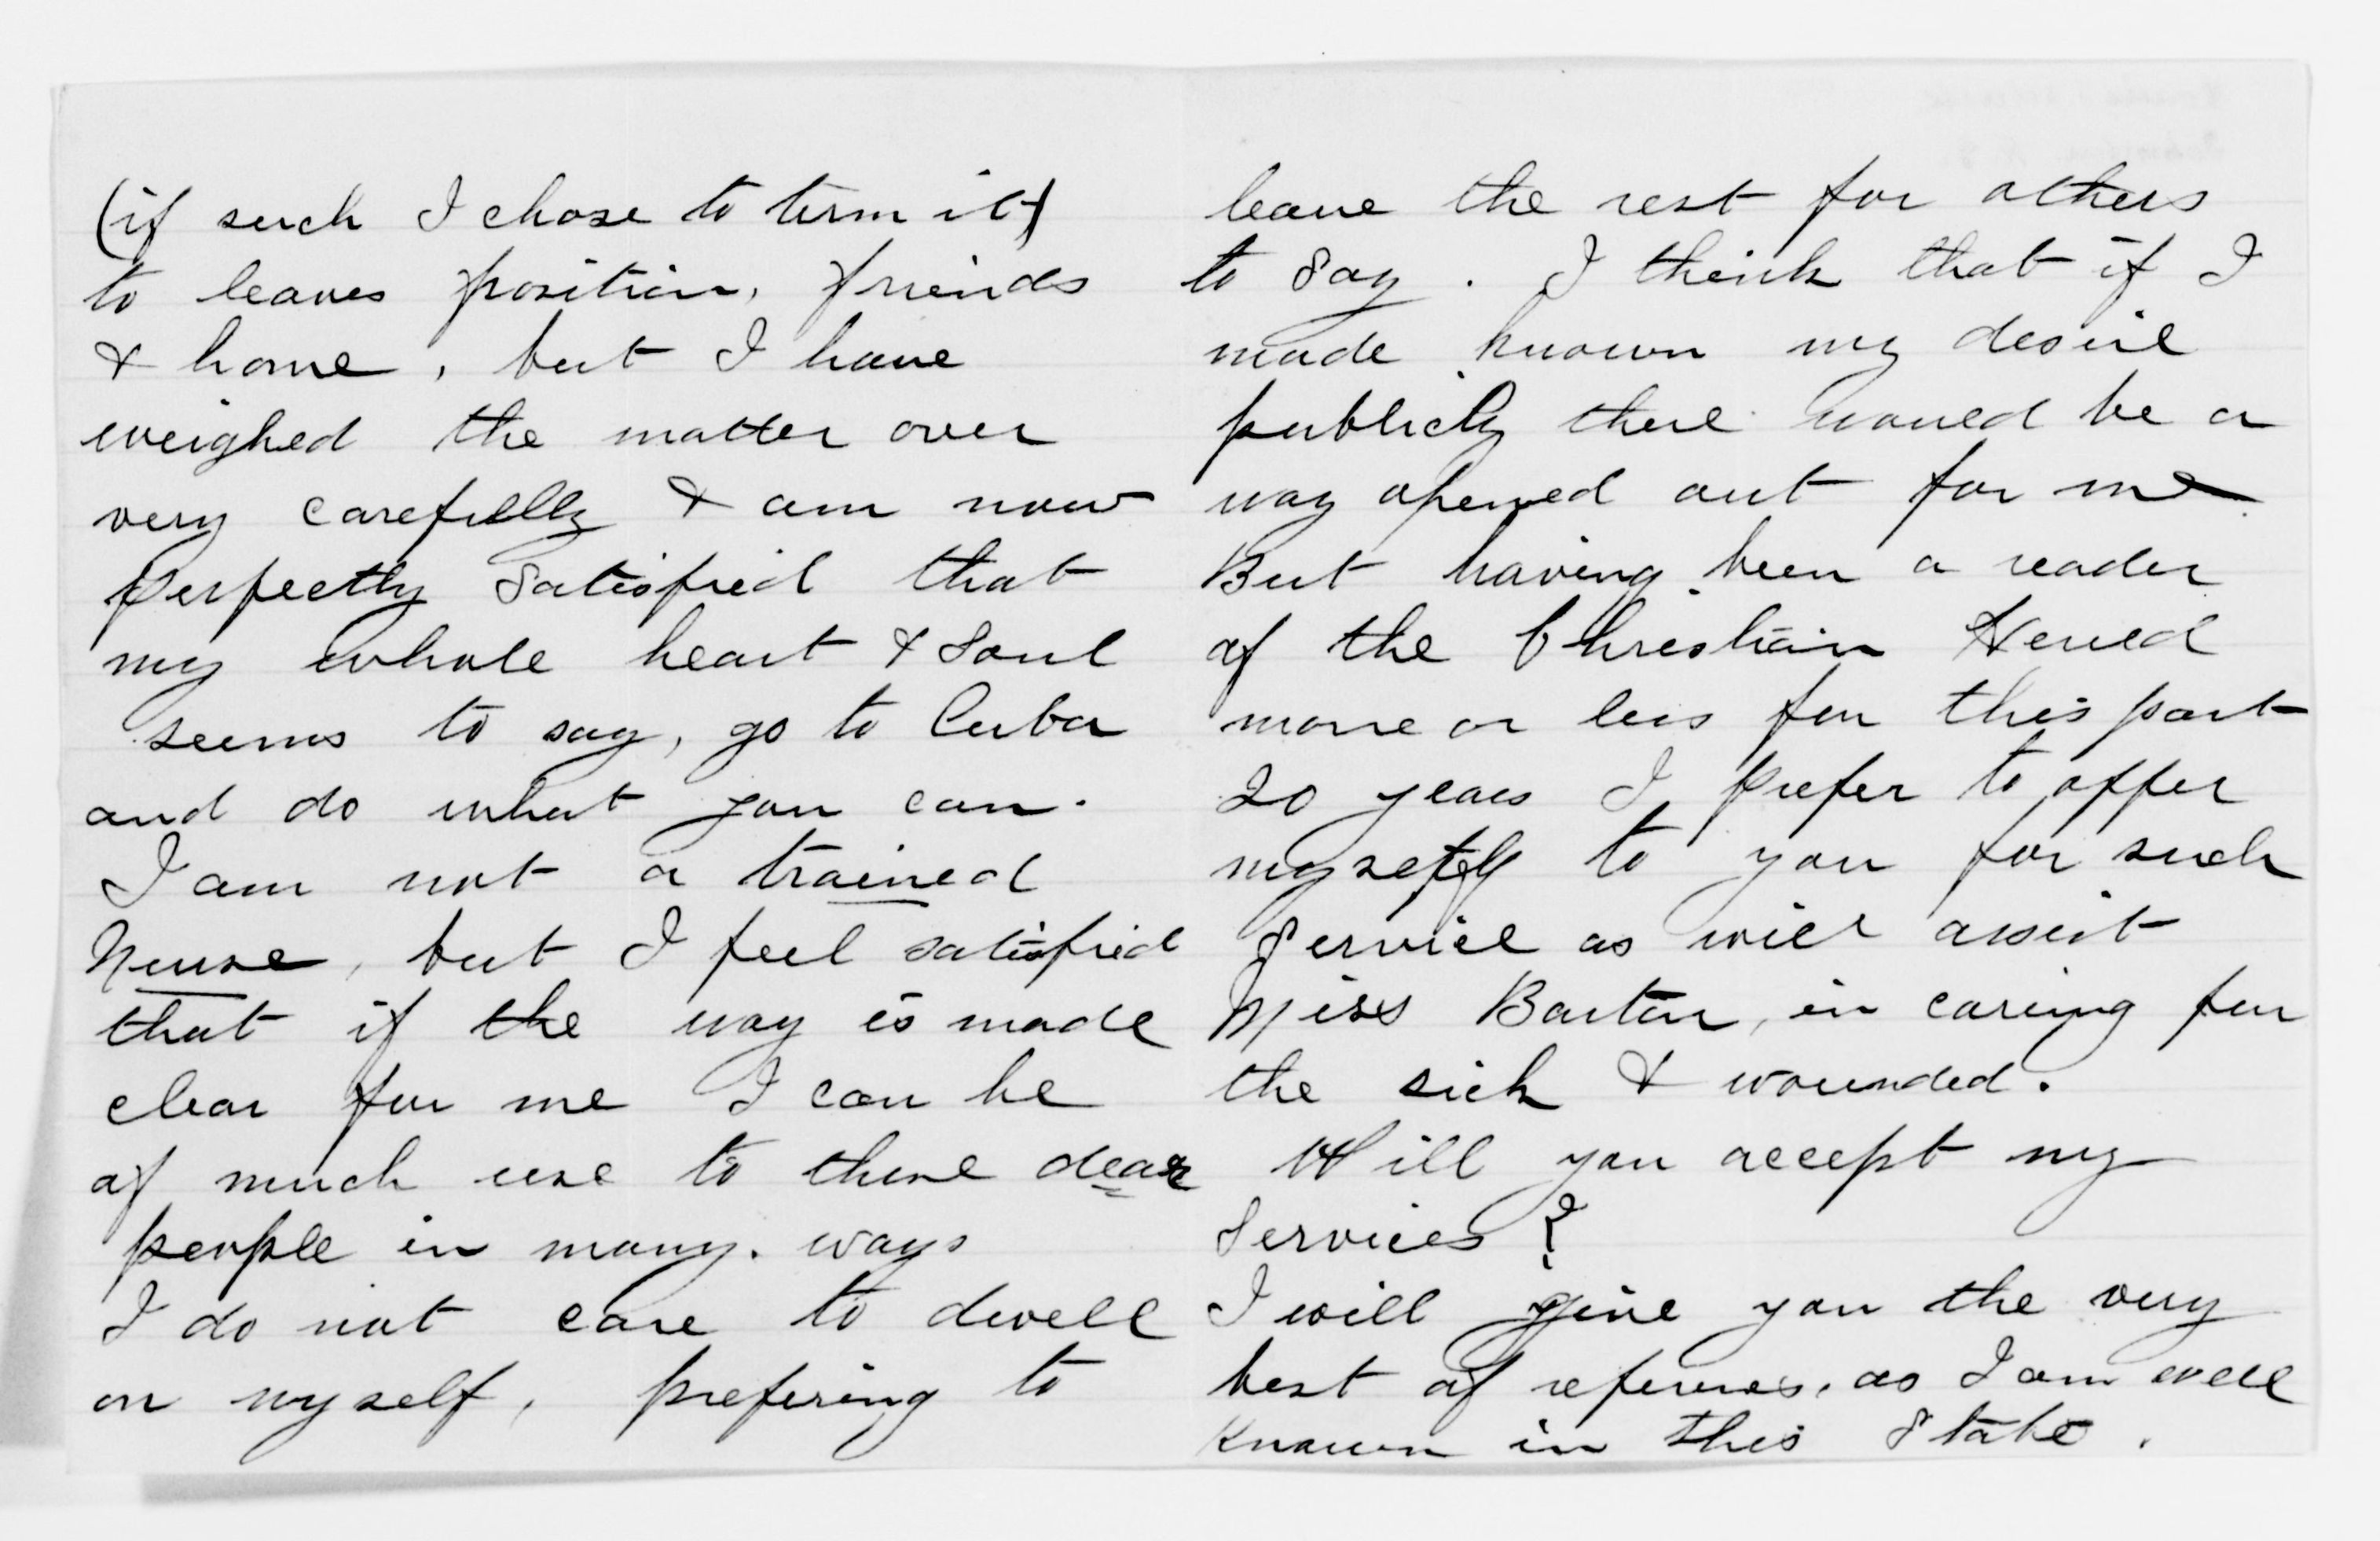 (if such I chose to term it)
to leaves position, friends
& home, but I have
weighed the matter over
very carefully & am now
perfectly satisfied that
my whole heart & soul
seems to say, go to Cuba
and do what you can.
I am not a trained
Nurse, but I feel satisfied
that if the way is made
clear for me I can be
of much use to these dear
people in many ways
I do not care to dwell
on myself, prefering to
leave the rest for others
to say. I think that if I
made known my desire
publicly there would be a
way opened out for me
But having been a reader
of the Christian Herald
more or less for this past
20 years I prefer to offer
myself to you for such
service as will assist
Miss Barton, in caring for
the sick & wounded.
Will you accept my
Services?
I will give you the very
best of refernces, as I am well
known in this State.